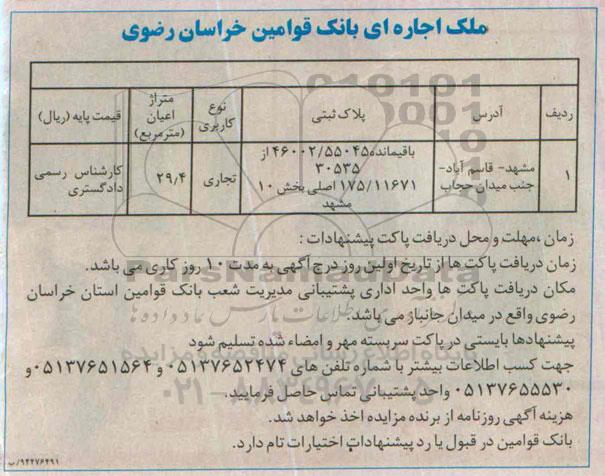 ملک اجاره ای بانک قوامین خراسان رضوی
ردیف آدرس پلاک ثبتی نوع کاربری متراژ اعیان (مترمربع) قیمت پایه (ریال)
۱ مشهد- قاسم آباد- جنب میدان حجاب باقیمانده۴۶۰۰۲/۵۵۰۴۵ از ۳۰۵۳۵ ۱۷۵/۱۱۶۷۱ اصلی بخش ۱۰ مشهد تجاری ۲۹٫۴ کارشناس رسمی دادگستری
زمان ،مهلت و محل دریافت پاکت پیشنهادات :
زمان دریافت پاکت ها از تاریخ اولین روز درج آگهی به مدت ۱۰ روز کاری می باشد.
مکان دریافت پاکت ها واحد اداری پشتیبانی مدیریت شعب بانک قوامین استان خراسان
رضوی واقع در میدان جانباز می باشد.
پیشنهادها بایستی در پاکت سربسته مهر و امضاء شده تسلیم شود
جهت کسب اطلاعات بیشتر با شماره تلفن های ۰۵۱۳۷۶۵۲۴۷۴ و ۰۵۱۳۷۶۵۱۵۶۴ و
۰۵۱۳۷۶۵۵۵۳۰ واحد پشتیبانی تماس حاصل فرمایید.
هزینه آگهی روزنامه از برنده مزایده اخذ خواهد شد.
بانک قوامین در قبول یا رد پیشنهادات اختیارات تام دارد.
۹۴۲۷۶۴۹۱/ب
ParsNamadData
پایگاه اطلاع رسانی مناقصه و مزایده